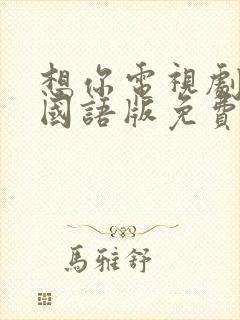 想你電視劇
國語版免費
馬雅舒